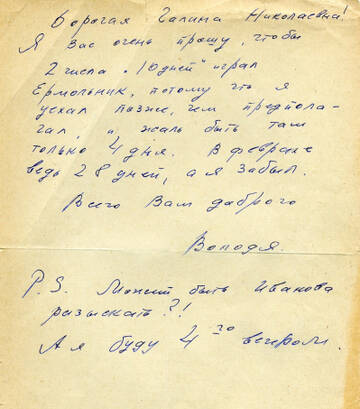 Дорогая Галина Николаевна!
Я Вас очень прошу, чтобы
2 числа "10 дней" играл
Ермольник, потому что я
уехал позже, чем предпола-
гал, и жаль быть там
только 4 дня. В феврале
ведь 28 дней, а я забыл.
Всего Вам доброго
Володя.
P.S. Может быть Иванова
разыскать?!
А я буду 4го вечером.